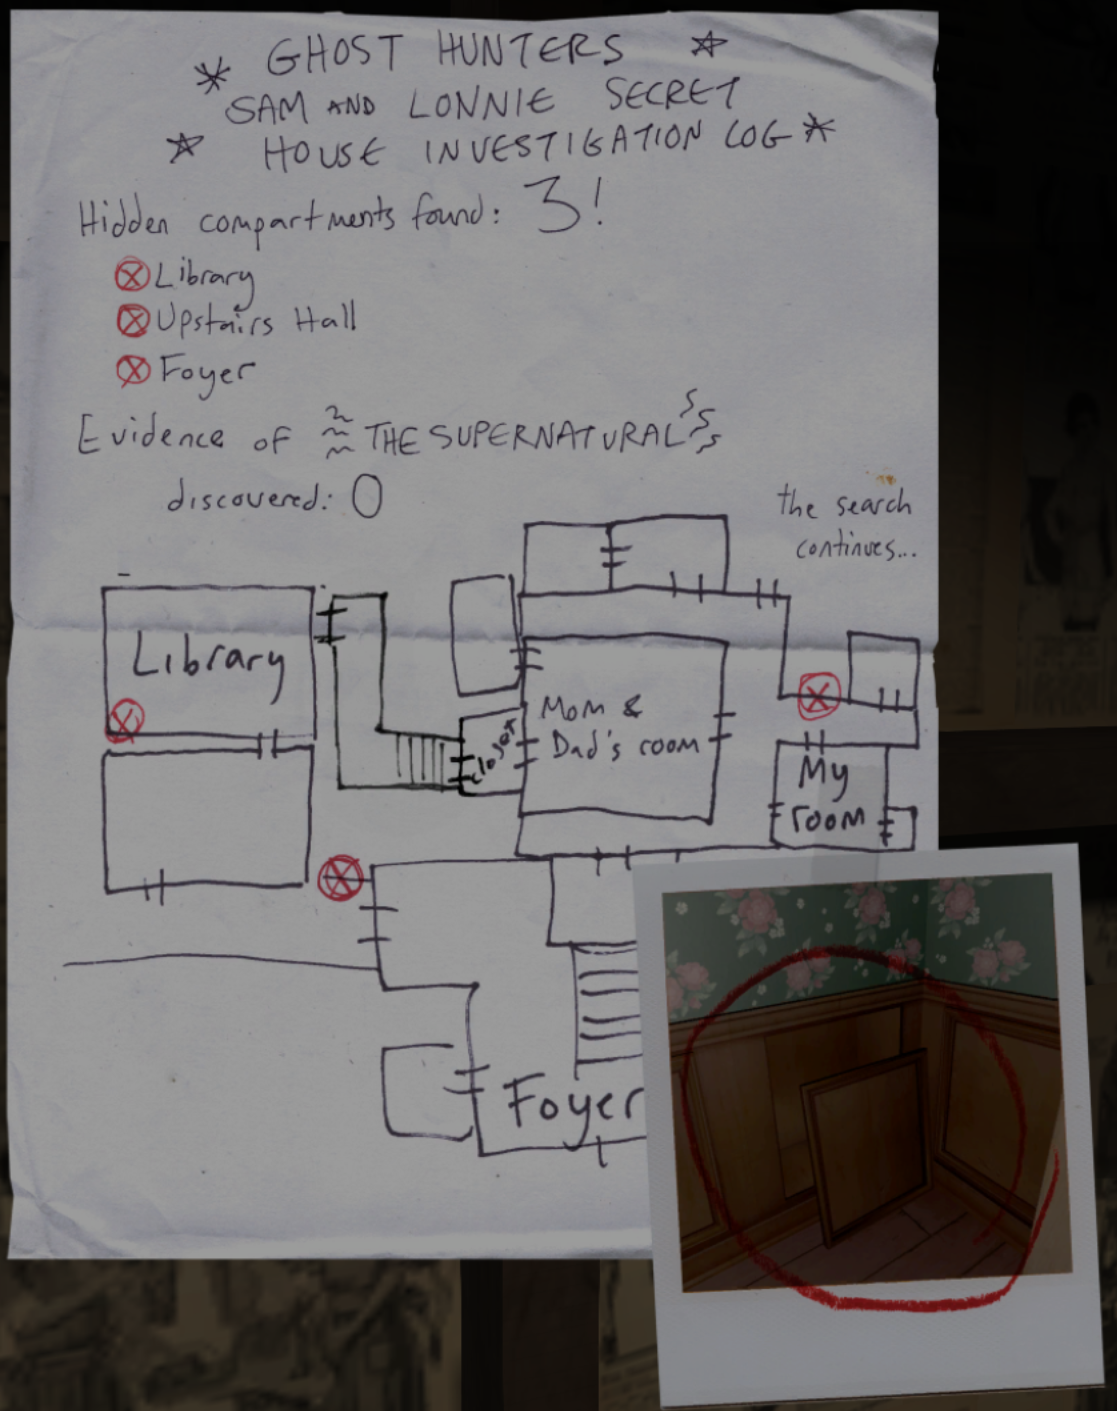 GHOST HUNTERS
SAM AND LONNIE SECRET
HOUSE INVESTIGATION LOG
Hidden compartments found: 3!
Library
Upstairs Hall
Foyer
Evidence of THE SUPERNATURAL
discovered: 0
the search
continues...
Library
Mom &
Dad's room
closet
My
room
Foyer